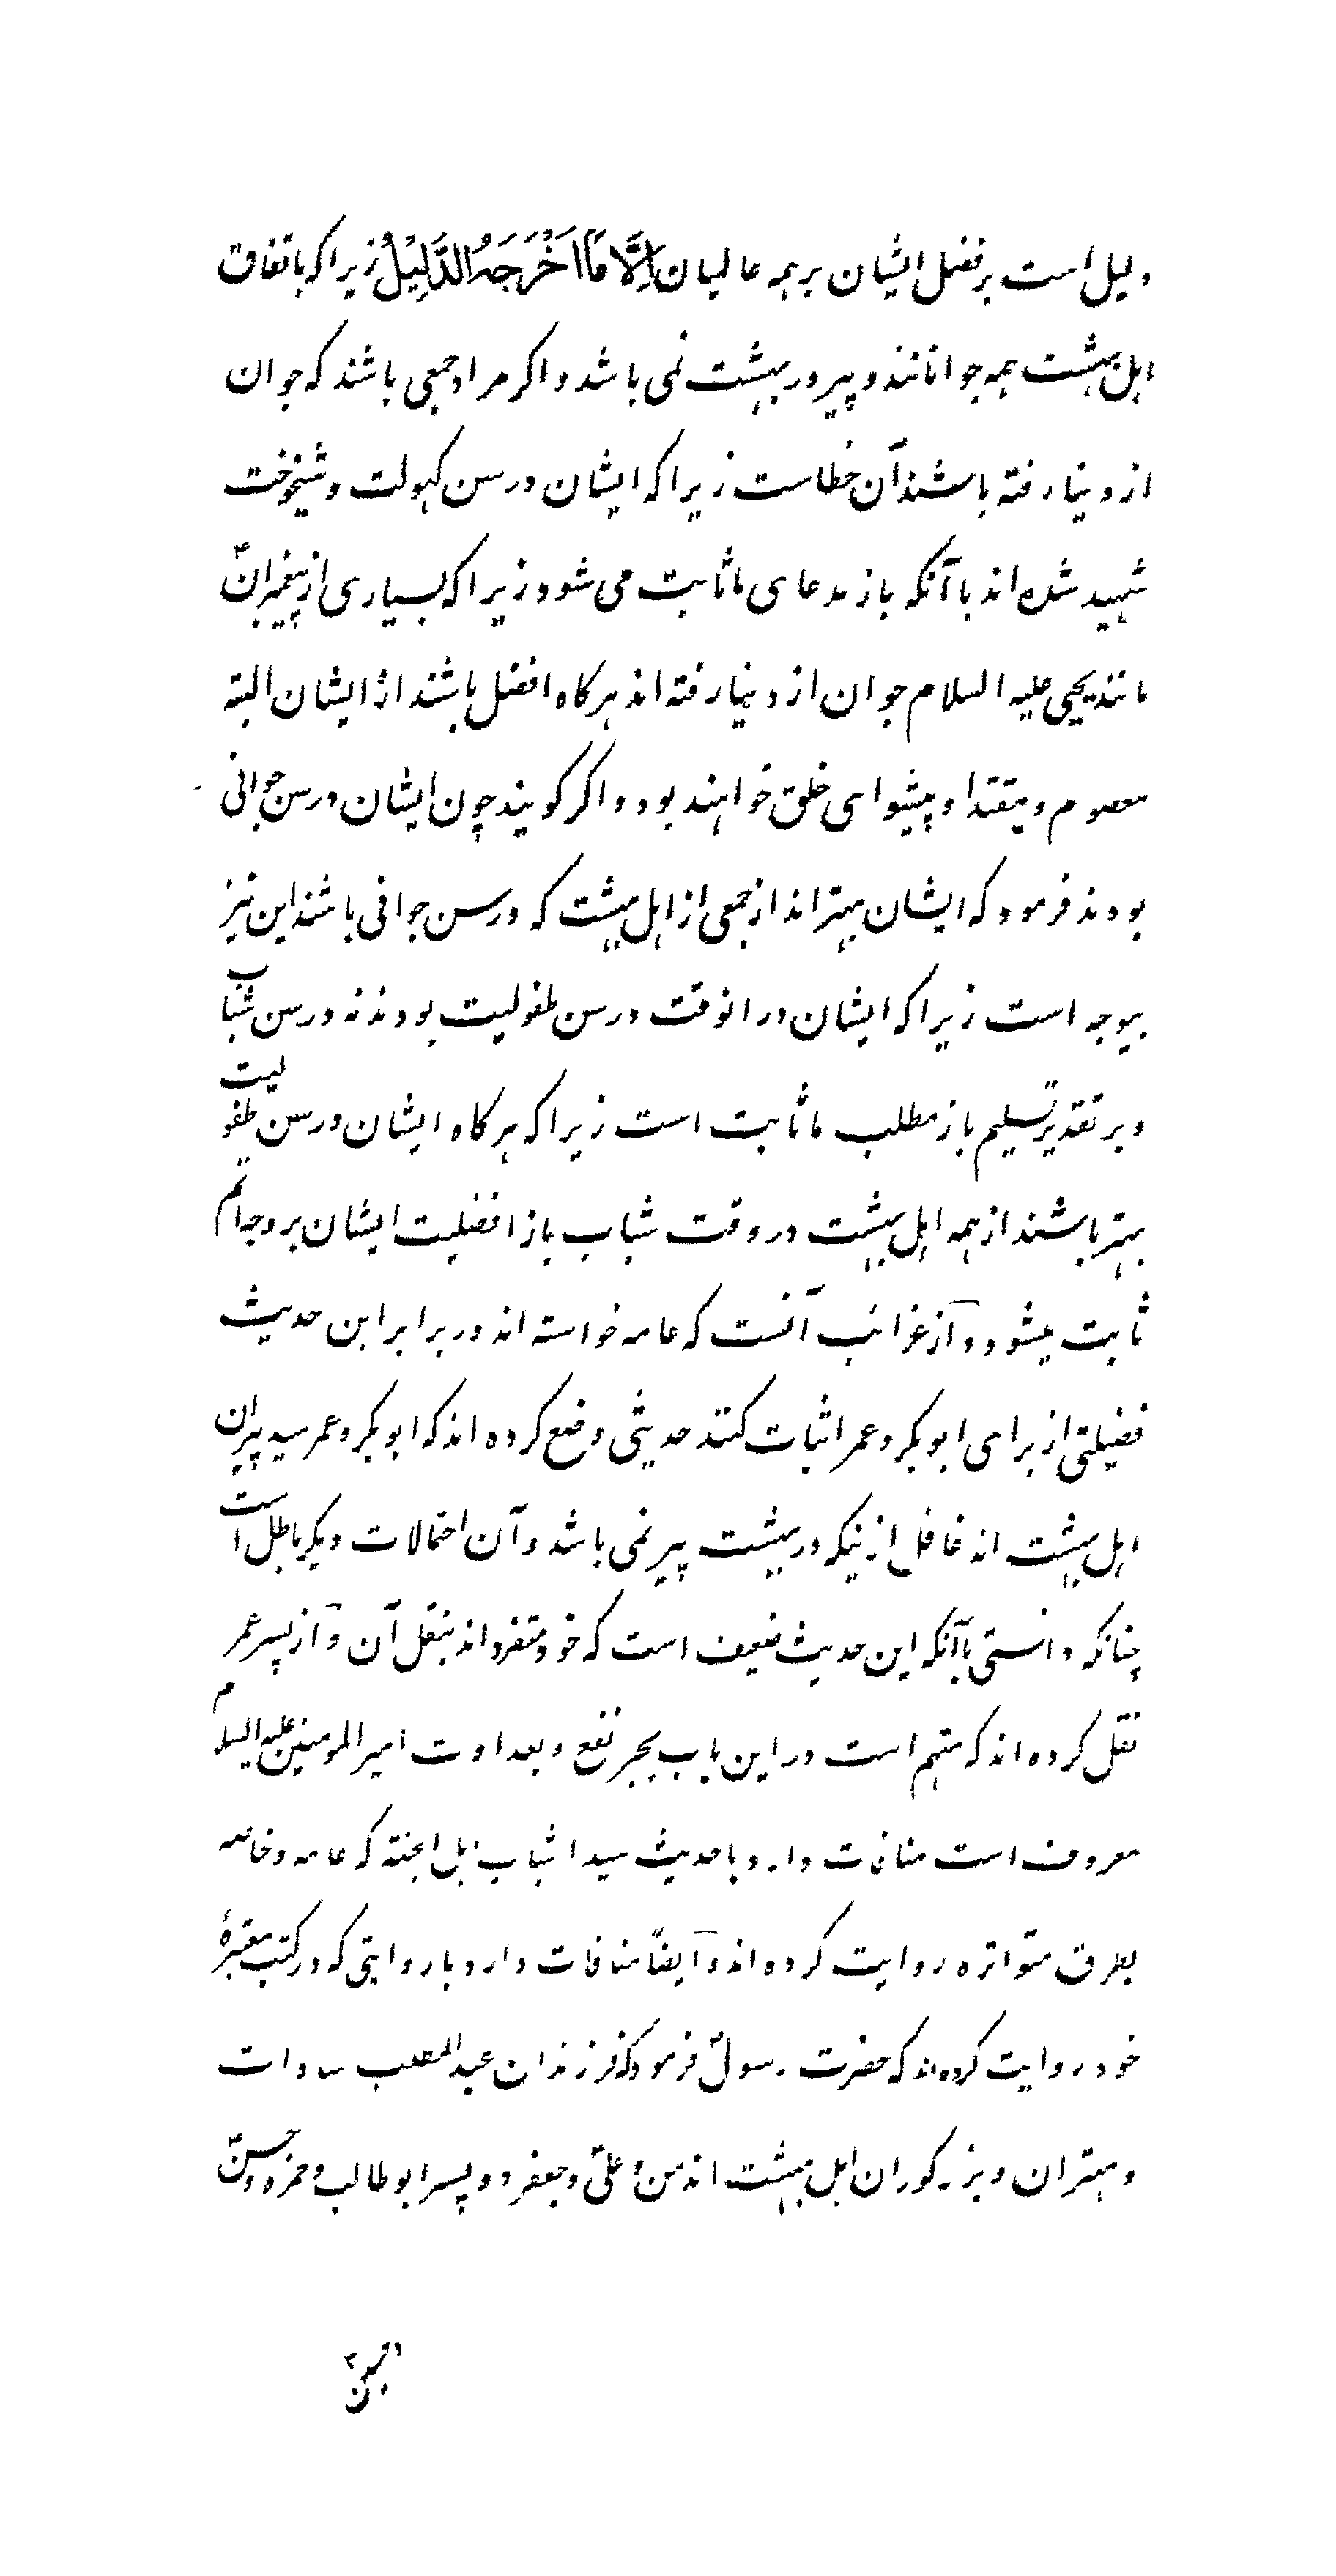 دلیل است بر فضل ایشان بر همه عالمیان اِلَّا مَا اَخْرَجَهُ الدَّلِیْلُ زیرا که باتفاق
اهل بهشت همه جوانانند و پیر در بهشت نمی باشد و اکر مراد جمعی باشند که جوان
از دنیا رفته باشند آن خطاست زیرا که ایشان در سن کهولت و شیخوخت
شهید شده اند با آنکه باز مدعای ما ثابت می شود زیرا که بسیاری از پیغمبران ؑ
مانند یحیی علیه السلام جوان از دنیا رفته اند هر کاه افضل باشند از ایشان البته
معصوم و مقتدا و پیشوای خلق خواهند بود و اکر کویند چون ایشان در سن جوانی
بودند فرمود که ایشان بهتر اند از جمعی از اهل بهشت که در سن جوانی باشند این نیز
بیوجه است زیرا که ایشان در انوقت در سن طفولیت بودند نه در سن شباب
و بر تقدیر تسلیم باز مطلب ما ثابت است زیرا که هر کاه ایشان در سن طفولیت
بهتر باشند از همه اهل بهشت در وقت شباب باز افضلیت ایشان بر وجه اتم
ثابت میشود و از غرائب آنست که عامه خواسته اند در برابر این حدیث
فضیلتی از برای ابو بکر و عمر اثبات کنند حدیثی وضع کرده اند که ابو بکر و عمر سید پیران
اهل بهشت اند غافل از نیکه در بهشت پیر نمی باشد و آن احتمالات دیکر باطل است
چنانکه دانستی با آنکه این حدیث ضعیف است که خود متفرد اند بنقل آن و از پسر عمر
نقل کرده اند که متهم است در این باب بجر نفع و بعداوت امیر المومنین علیه السلام
معروف است منافات دارد با حدیث سیدا شباب اهل الجنة که عامه و خاصه
بطرق متواتره روایت کرده اند و ایضاً منافات دارد با روایتی که در کتب معتبرهٔ
خود روایت کرده اند که حضرت رسول ؐ فرمود که فرزندان عبد المطلب سادات
و مهتران و بزرکوران اهل بهشت اند من و علی ؑ و جعفر دو پسر ابو طالب و حمزه و حسن ؑ